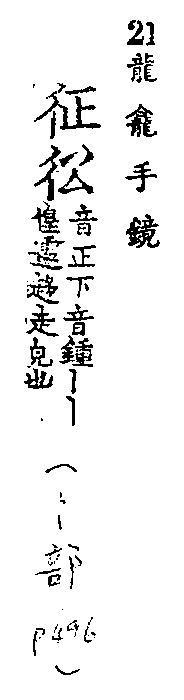 21 龍龕手鏡
征彸
音正下音鍾丨丨
惶遽趍走皃也
(彳部 P496)